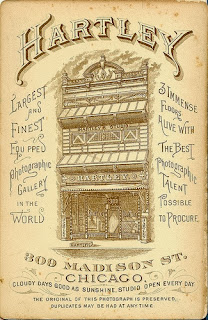 HARTLEY
LARGEST
AND
FINEST
EQUIPPED
Photographic
GALLERY
IN THE
WORLD
3 IMMENSE
FLOORS
ALIVE WITH
THE BEST
Photographic
TALENT
POSSIBLE
TO PROCURE.
HARTLEY
309 MADISON ST.
CHICAGO
CLOUDY DAYS GOOD AS SUNSHINE, STUDIO OPEN EVERY DAY.
THE ORIGINAL OF THIS PHOTOGRAPH IS PRESERVED,
DUPLICATES MAY BE HAD AT ANY TIME.